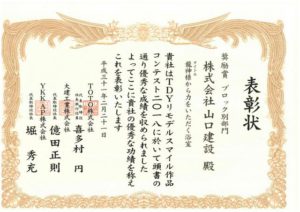 表彰状
奨励賞 ブロック別部門
龍神様から力をいただく浴室
株式会社 山口建設 殿
貴社はTDYリモデルスマイル作品
コンテスト二〇一八に於いて頭書の
通り優秀な成績を収められました
よってここに貴社の優秀な功績を称え
これを表彰いたします
平成三十一年二月二十一日
TOTO株式会社
喜多村 円
大建工業株式会社
億田正則
YKKAP株式会社
堀 秀充